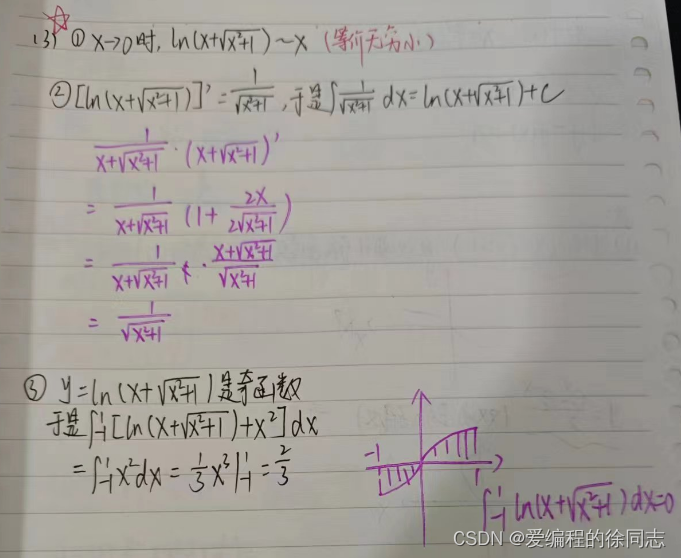 (3) ① x→0时, ln(x+√(x²+1)) ~ x (等价无穷小)
② [ln(x+√(x²+1))]' = 1/√(x²+1), 于是∫ 1/√(x²+1) dx = ln(x+√(x²+1))+C
1/(x+√(x²+1)) · (x+√(x²+1))'
= 1/(x+√(x²+1)) (1+ 2x/(2√(x²+1)))
= 1/(x+√(x²+1)) · (x+√(x²+1))/√(x²+1)
= 1/√(x²+1)
③ y=ln(x+√(x²+1))是奇函数
于是∫₋₁¹[ln(x+√(x²+1))+x²]dx
=∫₋₁¹x²dx = 1/3 x³|₋₁¹ = 2/3
-1
1
∫₋₁¹ ln(x+√(x²+1))dx=0
CSDN @爱编程的徐同志